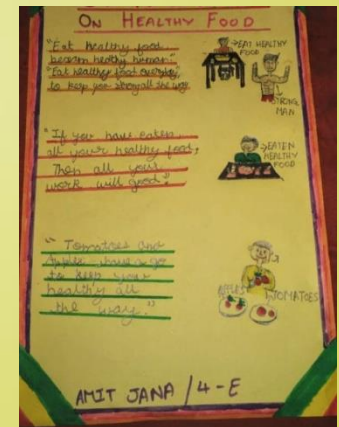 ON HEALTHY FOOD
"Eat healthy food
become healthy human"
"Eat healthy food everyday,
to keep you strong all the way.
→EAT HEALTHY
FOOD
STRONG
MAN
"If you have eaten
all your healthy food,
Then all your
work will good".
→EATEN
HEALTHY
FOOD
"Tomatoes and
Apples have a got
to keep your
healthy all
the way."
APPLES
TOMATOES
AMIT JANA / 4-E